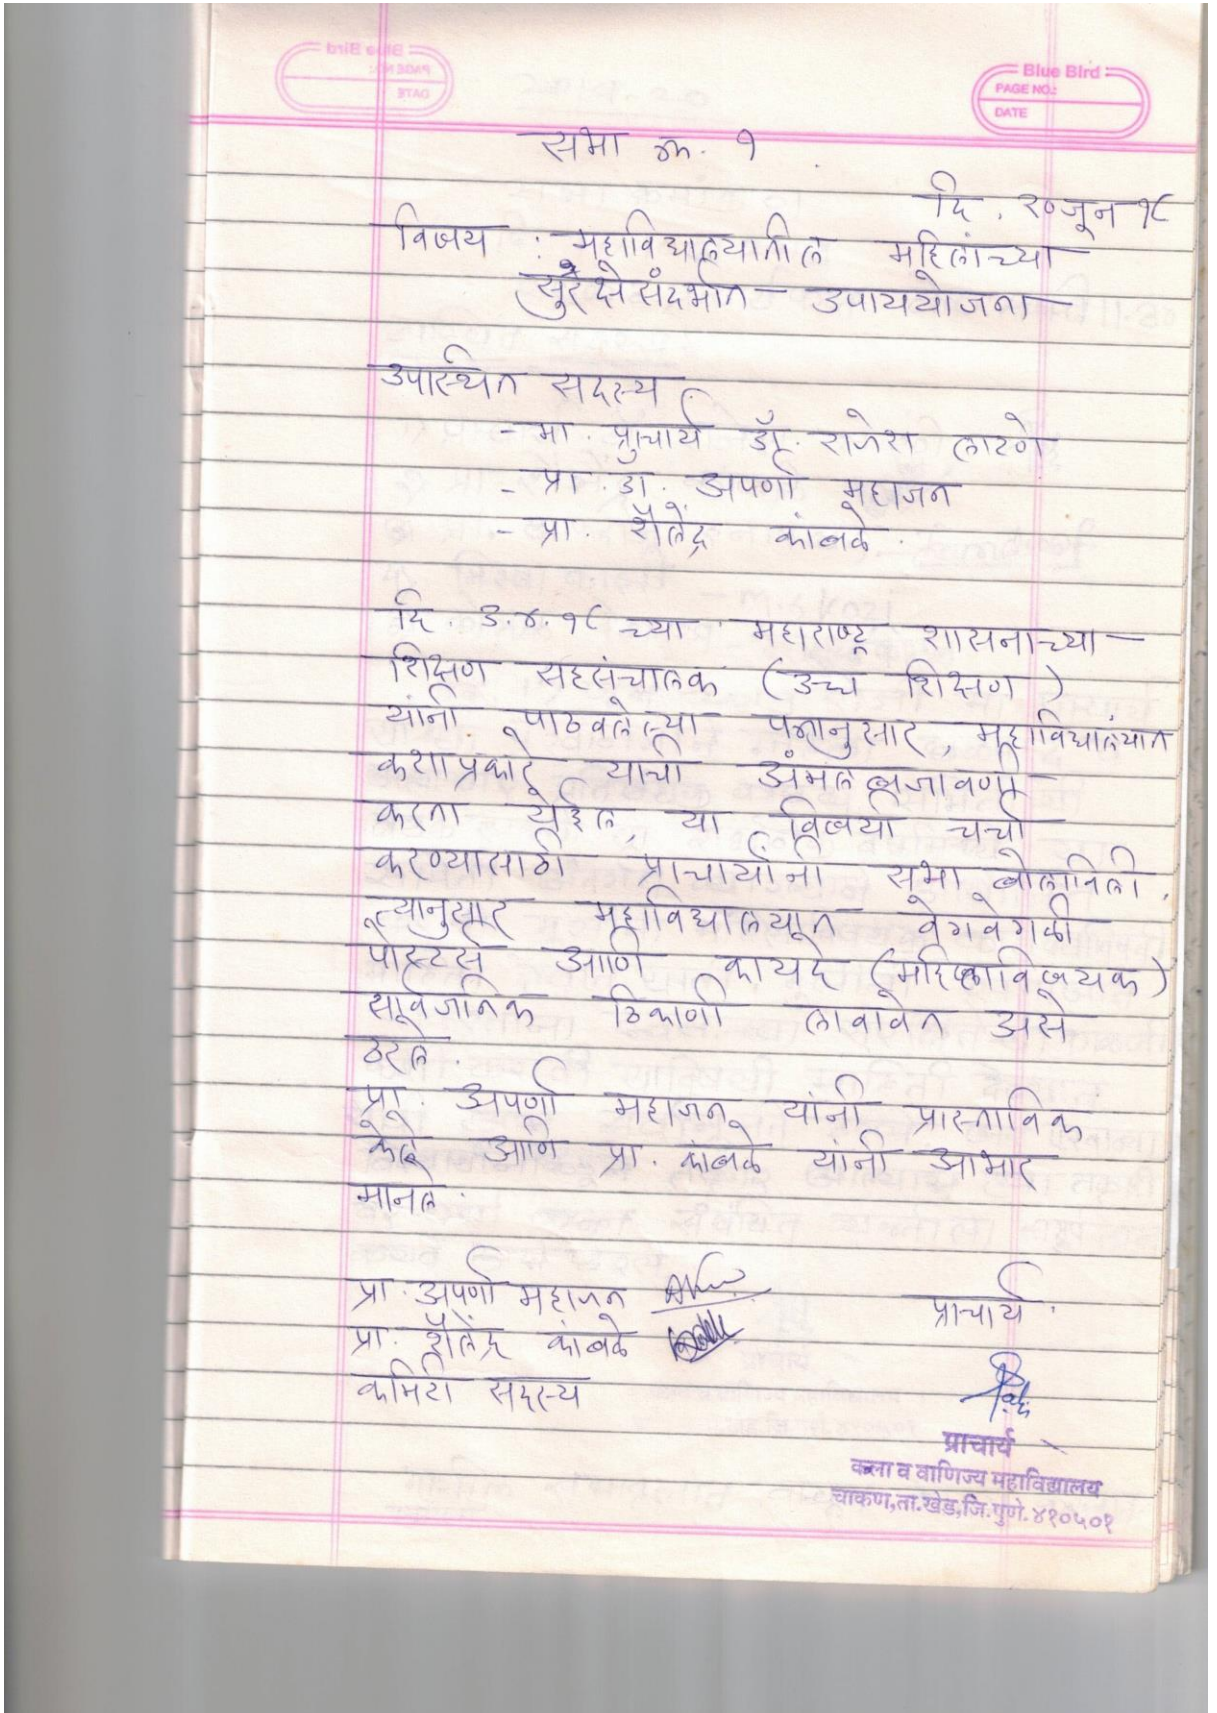 Blue Bird
PAGE NO.:
DATE
सभा क्र. १
दि. २० जून १८
विषय : महाविद्यालयातील महिलांच्या
सुरक्षेसंदर्भात उपाययोजना
उपस्थित सदस्य
- मा. प्राचार्य डॉ. राजेश लाटणे
- प्रा. डॉ. अपर्णा महाजन
- प्रा. शैलेंद्र कांबळे.
दि. ३.४.१८ च्या महाराष्ट्र शासनाच्या
शिक्षण सहसंचालक (उच्च शिक्षण)
यांनी पाठवलेल्या पत्रानुसार, महाविद्यालयात
कशाप्रकारे याची अंमलबजावणी
करता येईल, या विषयी चर्चा
करण्यासाठी प्राचार्यांनी सभा बोलाविली.
त्यानुसार महाविद्यालयात वेगवेगळी
पोस्टर्स आणि कायदे (महिलाविषयक)
सार्वजनिक ठिकाणी लावावेत असे
ठरले.
प्रा. अपर्णा महाजन यांनी प्रास्ताविक
केले आणि प्रा. कांबळे यांनी आभार
मानले.
प्रा. अपर्णा महाजन
प्राचार्य.
प्रा. शैलेंद्र कांबळे
कमिटी सदस्य
प्राचार्य
कला व वाणिज्य महाविद्यालय
चाकण,ता.खेड,जि.पुणे.४१०५०१